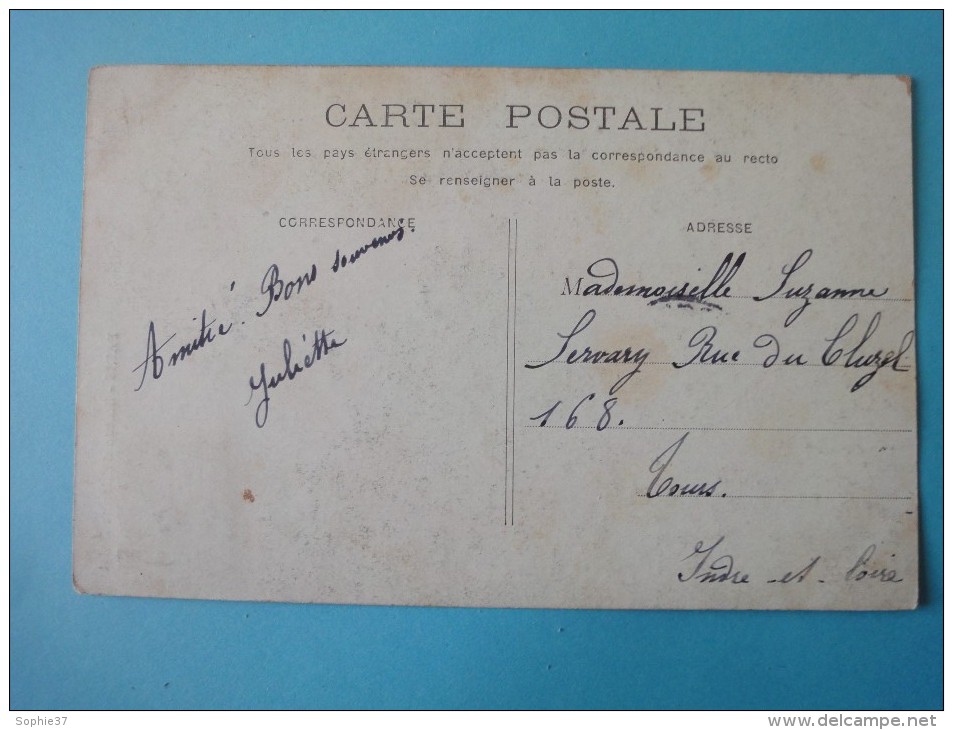 CARTE POSTALE
Tous les pays étrangers n'acceptent pas la correspondance au recto
Se renseigner à la poste.
CORRESPONDANCE
Amitié. Bons souvenirs.
Juliétte
ADRESSE
Mademoiselle Suzanne
Servary Rue du Cluzel
168.
Tours.
Indre-et-Loire
Sophie37
www.delcampe.net